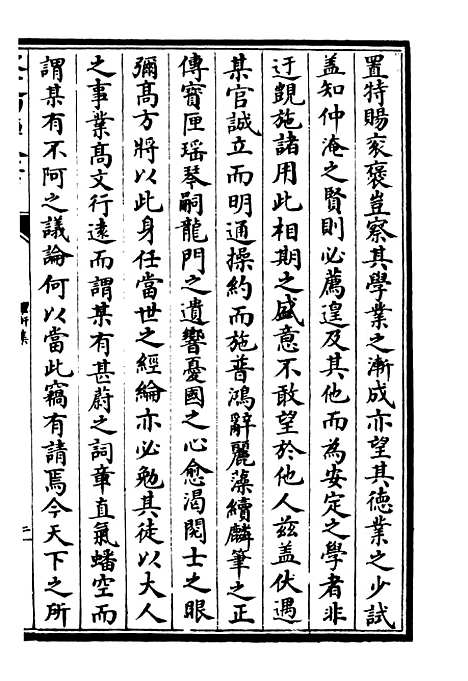 置特賜衮襃豈察其學業之漸成亦望其徳業之少試
盖知仲淹之賢則必薦遑及其他而為安定之學者非
迂覬施諸用此相期之盛意不敢望於他人兹盖伏遇
某官誠立而明通操約而施普鴻辭麗藻續麟筆之正
傳寳匣瑶琴嗣龍門之遺響憂國之心愈渴閲士之眼
彌髙方將以此身任當世之經綸亦必勉其徒以大人
之事業髙文行逺而謂某有甚蔚之詞章直氣蟠空而
謂某有不阿之議論何以當此竊有請焉今天下之所